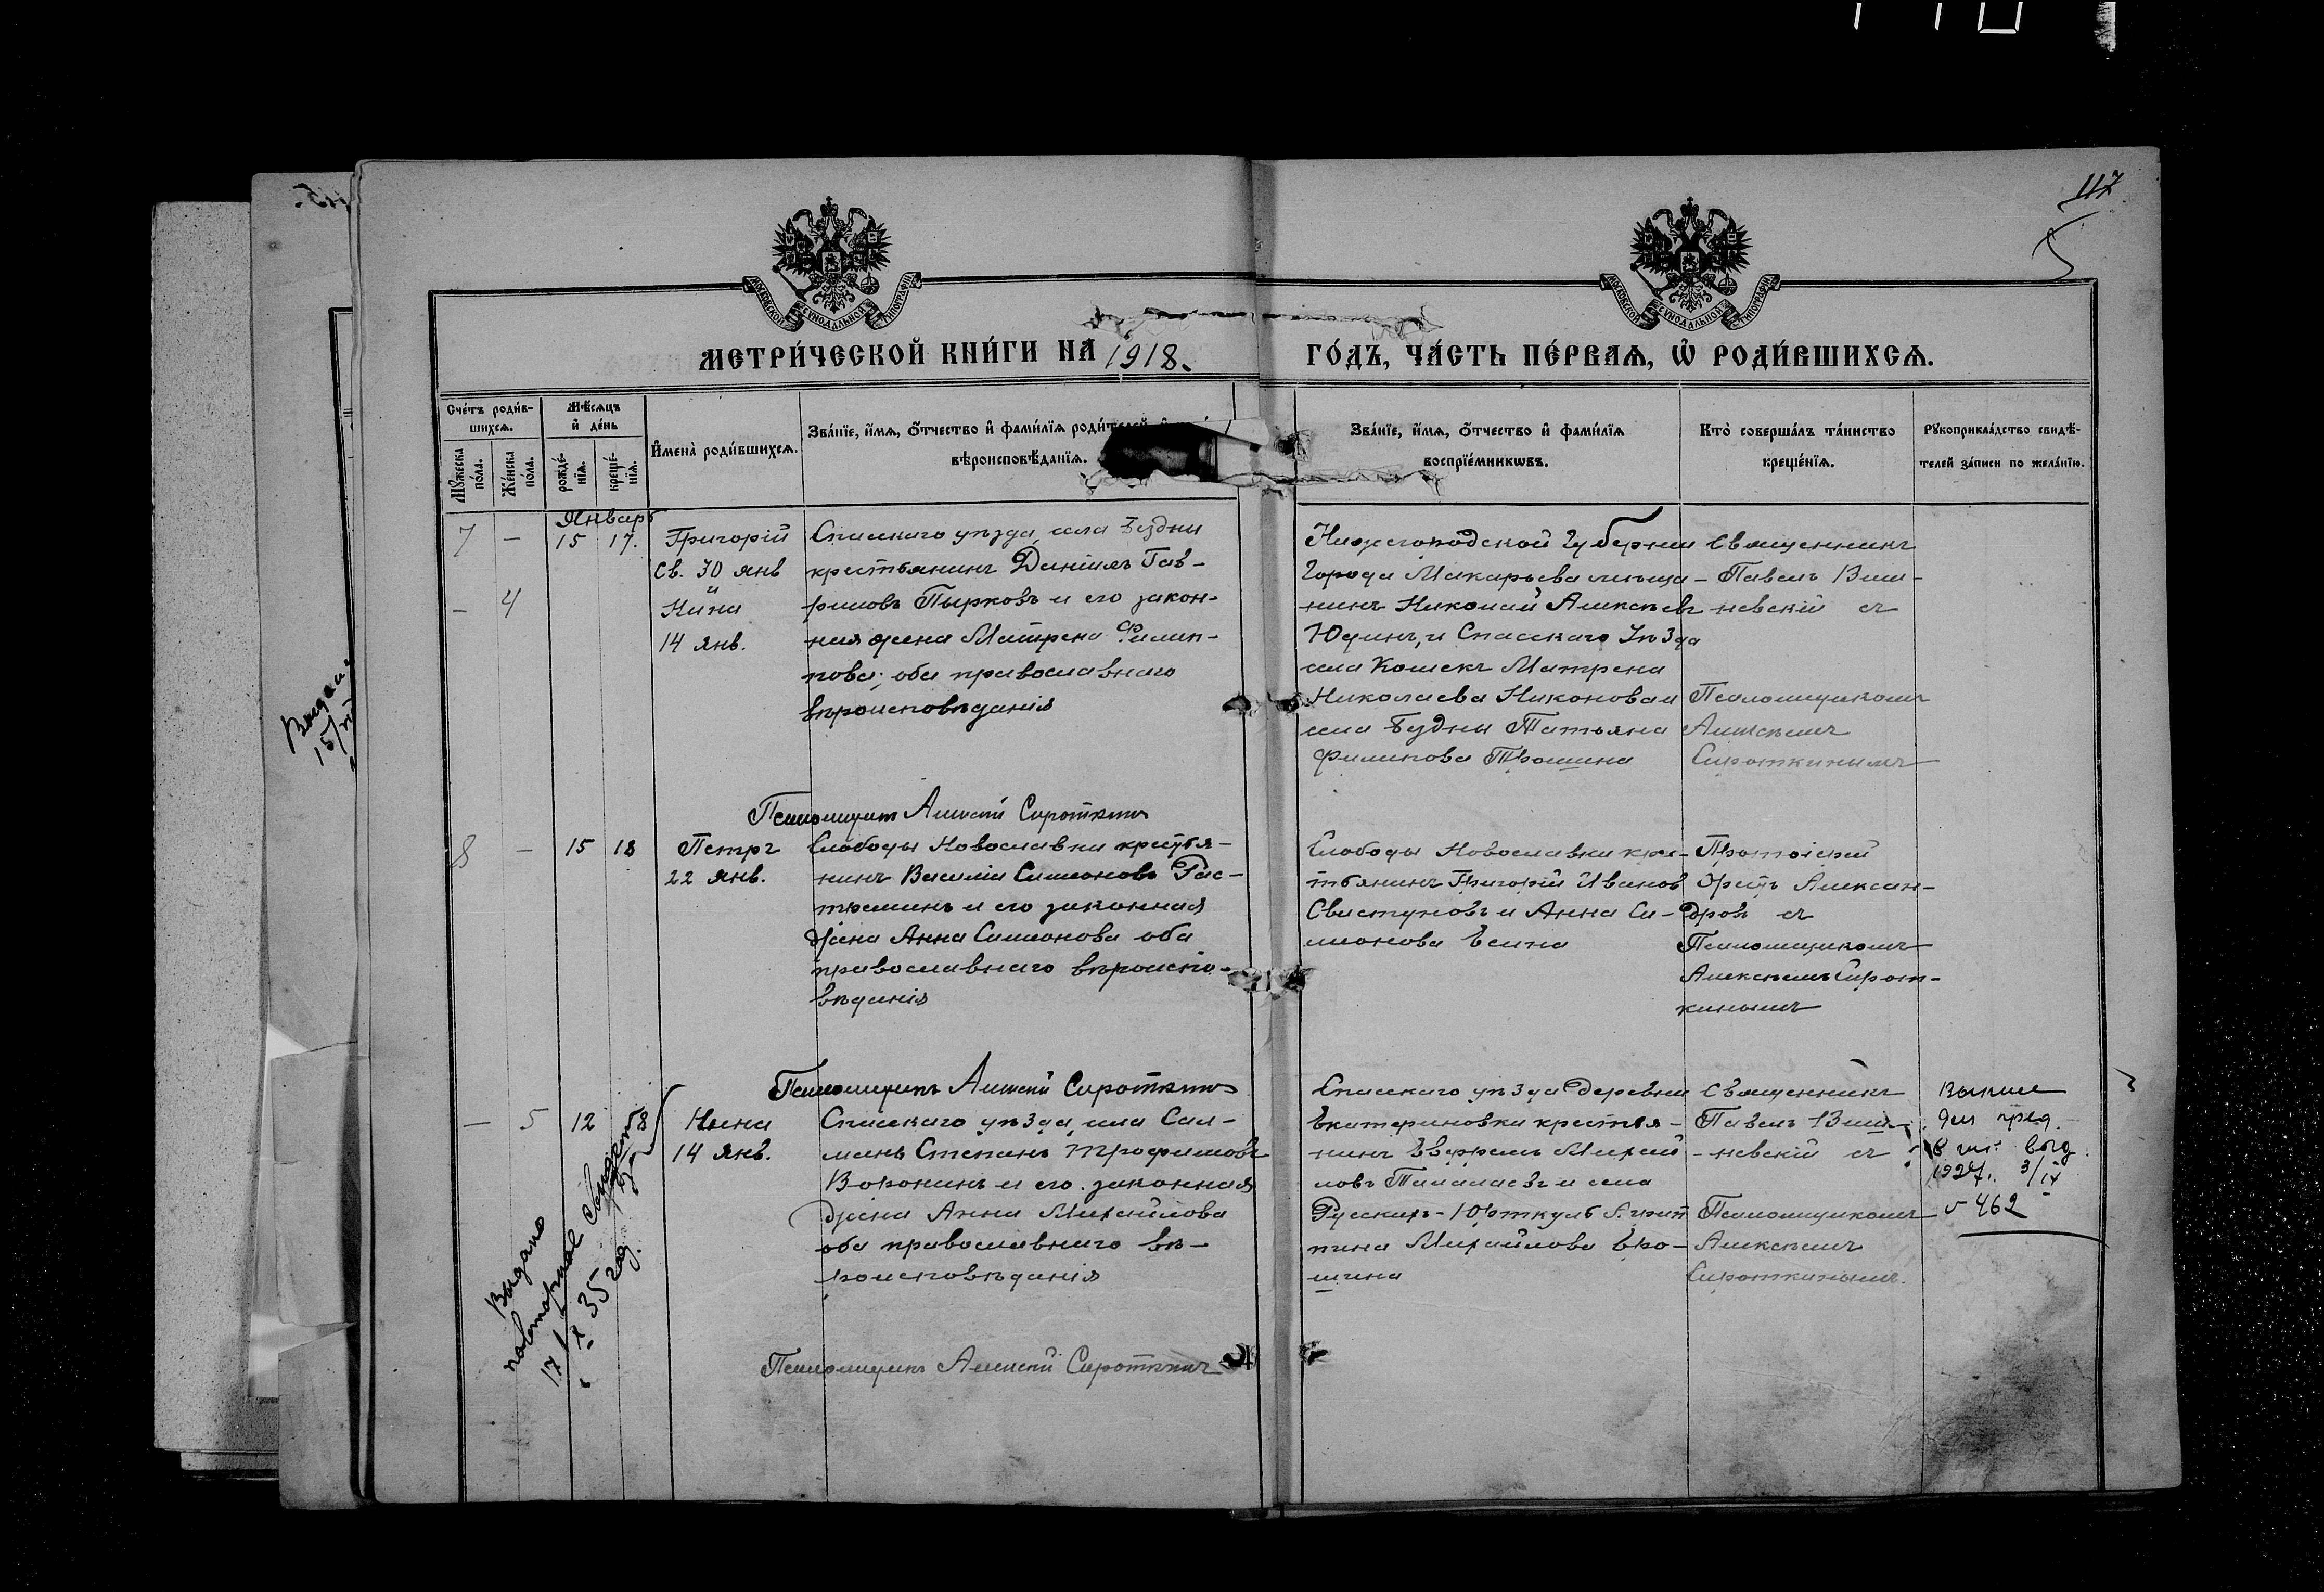 117
5
МОСКОВСКОЙ СѴНОДАЛЬНОЙ ТИПОГРАФІИ
МОСКОВСКОЙ СѴНОДАЛЬНОЙ ТИПОГРАФІИ
МЕТРИ́ЧЕСКОЙ КНИ́ГИ НА 1918.
ГО́ДЪ, ЧА́СТЬ ПЕ́РВАѦ, Ѡ РОДИ́ВШИХСѦ.
Сче́тъ роди́в-
шихсѧ.
Мꙋ́жеска
по́ла.
Же́нска
по́ла.
Мѣ́сѧцъ
и҆ де́нь
рожде́-
нїѧ.
креще́-
нїѧ.
И҆мена̀ роди́вшихсѧ.
Зва́нїе, и҆́мѧ, ѻ҆́тчество и҆ фами́лїѧ роди́телей
вѣроисповѣ́данїѧ.
Зва́нїе, и҆́мѧ, ѻ҆́тчество и҆ фами́лїѧ
воспрїе́мникѡвъ.
Кто̀ соверша́лъ та́инство
креще́нїѧ.
Рꙋкоприкла́дство свидѣ́-
телей за́писи по жела́нїю.
Январь
7 - 15 17.
Григорій
Св. 30 янв
и
- 4
Нина
14 янв.
Спасскаго уѣзда, села Бездни
крестьянинъ Даніилъ Гав-
риловъ Пырковъ и его закон-
ная жена Матрена Филип-
пова; оба православнаго
вѣроисповѣданія
Нижегородской Губерніи
Города Макарьева мѣща-
нинъ Николай Алексѣевъ
Юдинъ, и Спасскаго Уѣзда
села Кошекъ Матрена
Николаева Никонова и
села Бездны Татьяна
Филипова Трошина
Священникъ
Павелъ Виш-
невскій съ
Псаломщикомъ
Алексѣемъ
Сироткинымъ
Псаломщикъ Алексѣй Сироткинъ
8 - 15 18
Петръ
22 янв.
Слободы Новославки крестья-
нинъ Василій Симеоновъ Рас-
и его законная
жена Анна Симеонова оба
православнаго вѣроиспо-
вѣданія
Слободы Новославки крес-
тьянинъ Григорій Ивановъ
Свистуновъ и Анна Си-
монова
Протоіерей
Орестъ Алексан-
дровъ съ
Псаломщикомъ
Алексѣемъ Сирот-
кинымъ
Псаломщикъ Алексѣй Сироткинъ
- 5 12 18
Нина
14 янв.
Спасскаго уѣзда, села Сал-
манъ Степанъ Трофимовъ
Воронинъ и его законная
жена Анна Михайлова
оба православнаго вѣ-
роисповѣданія
Спасскаго уѣзда деревни
Екатериновки крестья-
нинъ Ефремъ Михай-
ловъ и села
Русскихъ-Юрткуль Агрип
пина Михайлова Еро-
шина
Священникъ
Павелъ Виш-
невскій съ
Псаломщикомъ
Алексѣемъ
Сироткинымъ.
Выпис
для пред.
выд.
1927. 3/IX
462
Выдано
повторное
17/X 35 год.
Псаломщикъ Алексѣй Сироткинъ